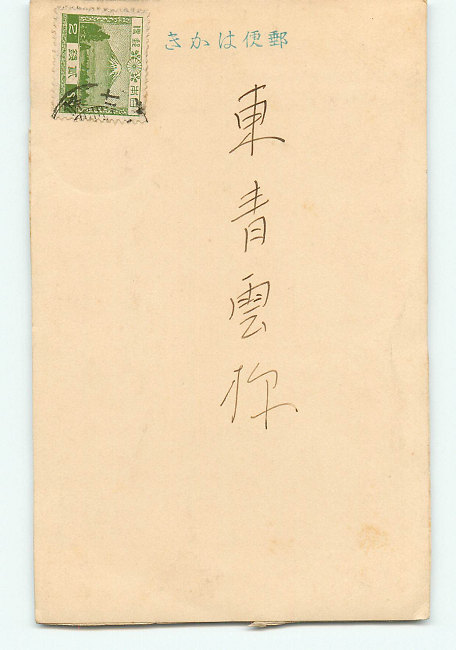 郵便はかき
東青雲様
大日本帝國郵便
貳銭